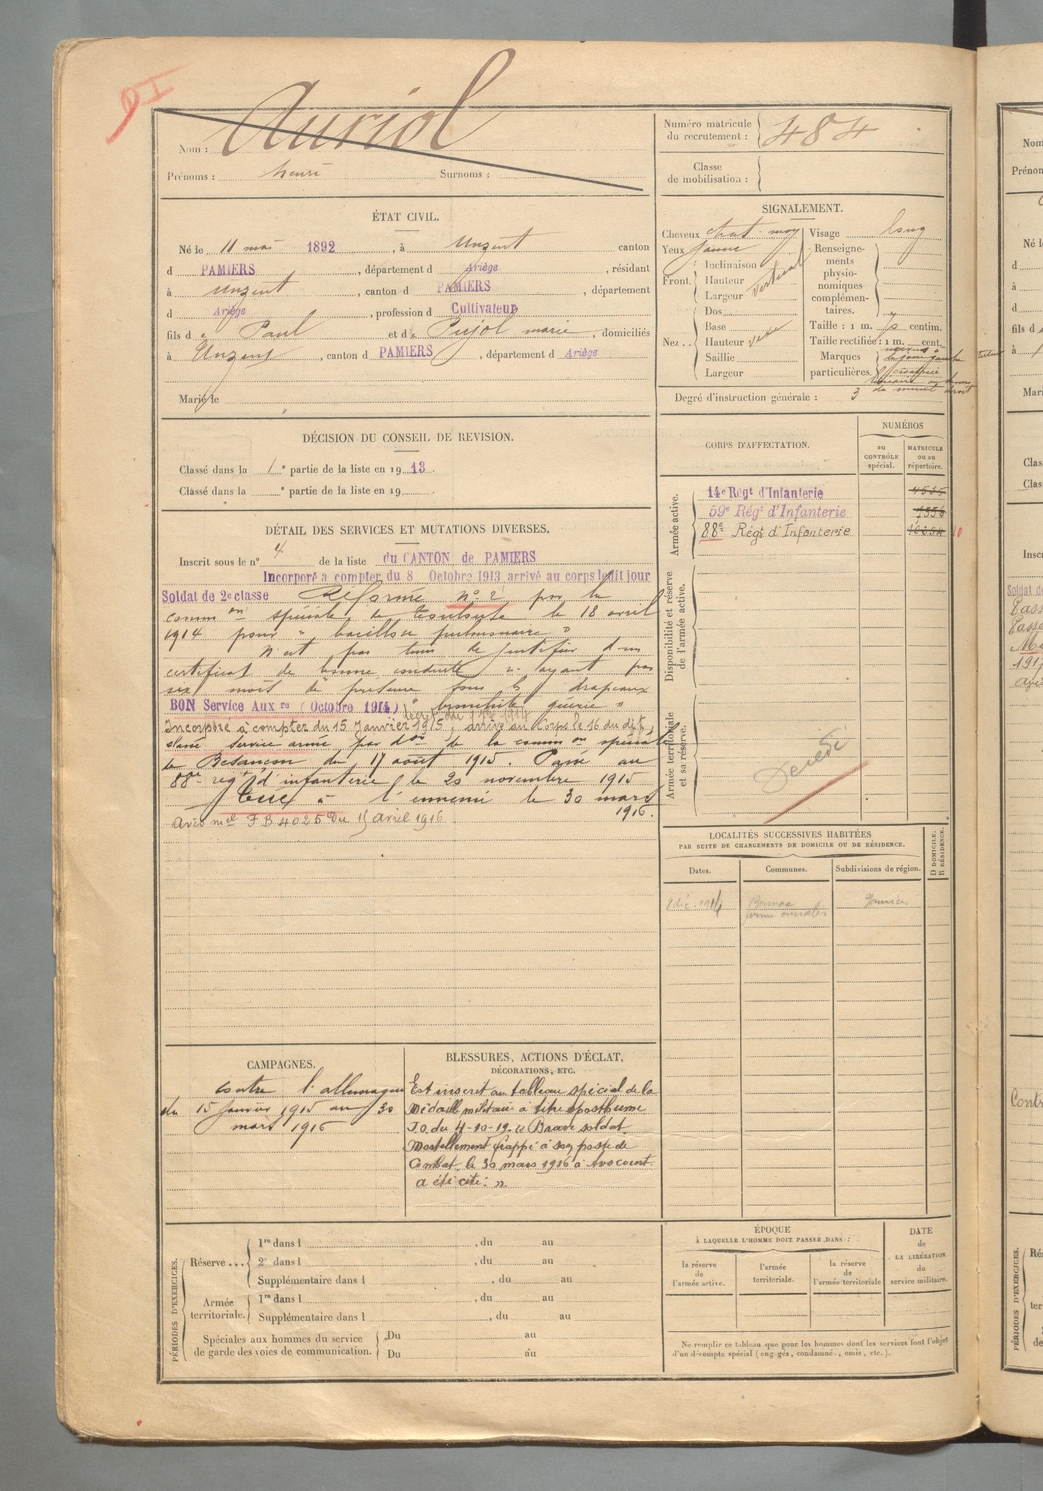 Auriol
Nom :
Prénoms : henri Surnoms :
Numéro matricule
du recrutement : 484
Classe
de mobilisation :
ÉTAT CIVIL.
Né le 11 mai 1892, à Unzent canton
d PAMIERS, département d Ariège, résidant
à Unzent, canton d PAMIERS, département
d Ariège, profession d Cultivateur
fils d e Paul et d e Pujol marie, domiciliés
à Unzent, canton d PAMIERS, département d Ariège
Marié le
SIGNALEMENT.
Cheveux chat. moy
Yeux jaune
Front. Inclinaison
Hauteur vertical
Largeur
Nez .. Dos
Base
Hauteur
Saillie
Largeur
Visage long
Renseigne-
ments
physio-
nomiques
complémen-
taires.
Taille : 1 m. centim.
Taille rectifiée : 1 m. cent.
Marques
particulières.
Degré d'instruction générale : 3
DÉCISION DU CONSEIL DE REVISION.
Classé dans la 1e partie de la liste en 1913.
Classé dans la e partie de la liste en 19
DÉTAIL DES SERVICES ET MUTATIONS DIVERSES.
Inscrit sous le n° 4 de la liste du CANTON de PAMIERS
Incorporé à compter du 8 Octobre 1913 arrivé au corps ledit jour
Soldat de 2e classe Réformé n° 2 par la
comm on spéciale de Toulouse le 18 avril
1914 pour " bacillose pulmonaire "
N'est pas tenu de justifier d'un
certificat de bonne conduite n'ayant pas
six mois de présence sous les drapeaux
BON Service Aux re (Octobre 1914) " bronchite guérie "
Incorporé à compter du 15 Janvier 1915, arrivé au Corps le 16 du dit,
classé service armé par d on de la comm on spéciale
de Besançon du 17 août 1915. Passé au
88e rég t d'infanterie le 20 novembre 1915
Tué à l'ennemi le 30 mars
1916.
Avis m el F B 4025 du 15 avril 1916
CORPS D'AFFECTATION.
NUMÉROS
au
CONTRÔLE
spécial.
MATRICULE
ou au
répertoire.
Armée active.
14e Régt d'Infanterie
59e Régt d'Infanterie
88e Régt d'Infanterie
Disponibilité et réserve
de l'armée active.
Armée territoriale
et sa réserve.
Décédé
LOCALITÉS SUCCESSIVES HABITÉES
PAR SUITE DE CHANGEMENTS DE DOMICILE OU DE RÉSIDENCE.
Dates.
Communes.
Subdivisions de région.
D DOMICILE.
R RÉSIDENCE.
CAMPAGNES.
Contre l'allemagne
du 15 janvier 1915 au 30
mars 1916
BLESSURES, ACTIONS D'ÉCLAT,
DÉCORATIONS, ETC.
Est inscrit au tableau spécial de la
Médaille militaire à titre posthume
J.O. du 4-10-19. « Brave soldat.
Mortellement frappé à son poste de
Combat, le 30 mars 1916 à Avocourt.
a été cité: ».
PÉRIODES D'EXERCICES.
Réserve ...
1re dans l , du au
2e dans l , du au
Supplémentaire dans l , du au
Armée
territoriale.
1re dans l , du au
Supplémentaire dans l , du au
Spéciales aux hommes du service
de garde des voies de communication.
Du au
Du au
ÉPOQUE
À LAQUELLE L'HOMME DOIT PASSER DANS :
la réserve
de
l'armée active.
l'armée
territoriale.
la réserve
de
l'armée territoriale
DATE
de
LA LIBÉRATION
du
service militaire.
Ne remplir ce tableau que pour les hommes dont les services font l'objet
d'un décompte spécial (engagés, condamnés, omis, etc.).